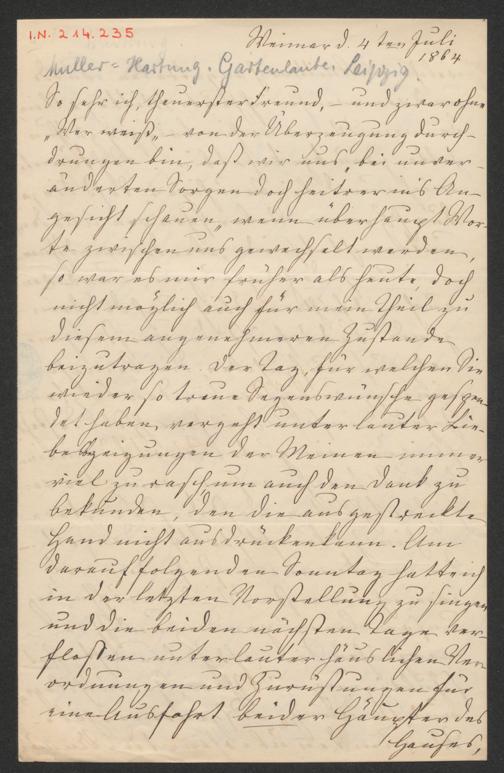 I.N. 214.235
Weimar d. 4ten Juli
1864
Müller-Hartung. Gartenlaube. Leipzig.
So sehr ich, theuerster Freund, – und zwar ohne
„Verweiß„ – von der Überzeugung durch-
drungen bin, daß wir uns „bei unver-
änderten Sorgen doch heitrer in's An-
gesicht schauen„ wenn überhaupt Wor-
te zwischen uns gewechselt werden,
so war es mir früher als heute, doch
nicht möglich auch für mein Theil zu
diesem angenehmeren Zustande
beizutragen. Der Tag, für welchen Sie
wieder so treue Segenswünsche gespen-
det haben, vergeht unter lauter Lie-
besbezeigungen der Meinen immer
viel zu rasch um auch den Dank zu
bekunden, den die ausgestreckte
Hand nicht ausdrücken kann. Am
darauf folgenden Sonntag hatte ich
in der letzten Vorstellung zu singen
und die beiden nächsten Tage ver-
flossen unter lauter häuslichen Ver-
ordnungen und Zurüstungen für
eine Ausfahrt beider Häupter des
Hauses,